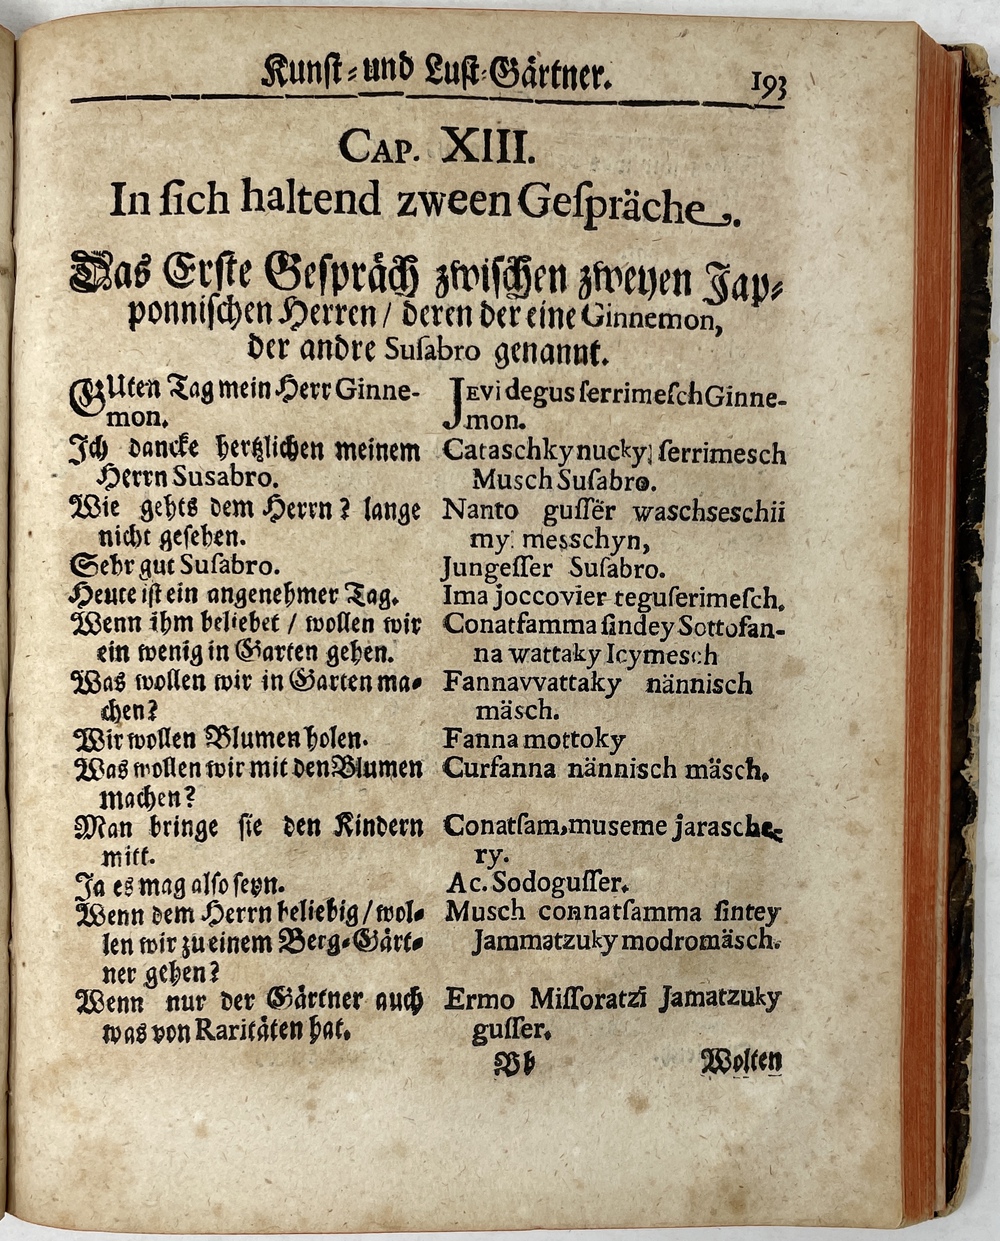 Kunſt- und Luſt-Gärtner. 193
CAP. XIII.
In ſich haltend zween Geſpräche.
Das Erſte Geſpräch zwiſchen zweyen Jap-
ponniſchen Herren / deren der eine Ginnemon,
der andre Suſabro genannt.
GUten Tag mein Herr Ginne-
mon.
Ich dancke hertzlichen meinem
Herrn Susabro.
Wie gehts dem Herrn? lange
nicht geſehen.
Sehr gut Suſabro.
Heute iſt ein angenehmer Tag.
Wenn ihm beliebet / wollen wir
ein wenig in Garten gehen.
Was wollen wir in Garten ma-
chen?
Wir wollen Blumen holen.
Was wollen wir mit den Blumen
machen?
Man bringe ſie den Kindern
mitt.
Ja es mag alſo ſeyn.
Wenn dem Herrn beliebig / wol-
len wir zu einem Berg-Gärt-
ner gehen?
Wenn nur der Gärtner auch
was von Raritäten hat.
JEvi degus ſerrimeſch Ginne-
mon.
Cataschky nucky, ſerrimesch
Musch Suſabro.
Nanto guſſër waschseschii
my. messchyn,
Jungeſſer Suſabro.
Ima joccovier teguſerimeſch.
Conatſamma ſindey Sottofan-
na wattaky Icymesch
Fannavvattaky nännisch
mäsch.
Fanna mottoky
Curfanna nännisch mäsch.
Conatſam,museme jarasche
ry.
Ac. Sodoguſſer.
Musch connatſamma ſintey
Jammatzuky modromäsch.
Ermo Miſſoratzi Jamatzuky
guſſer.
Bb Wolten